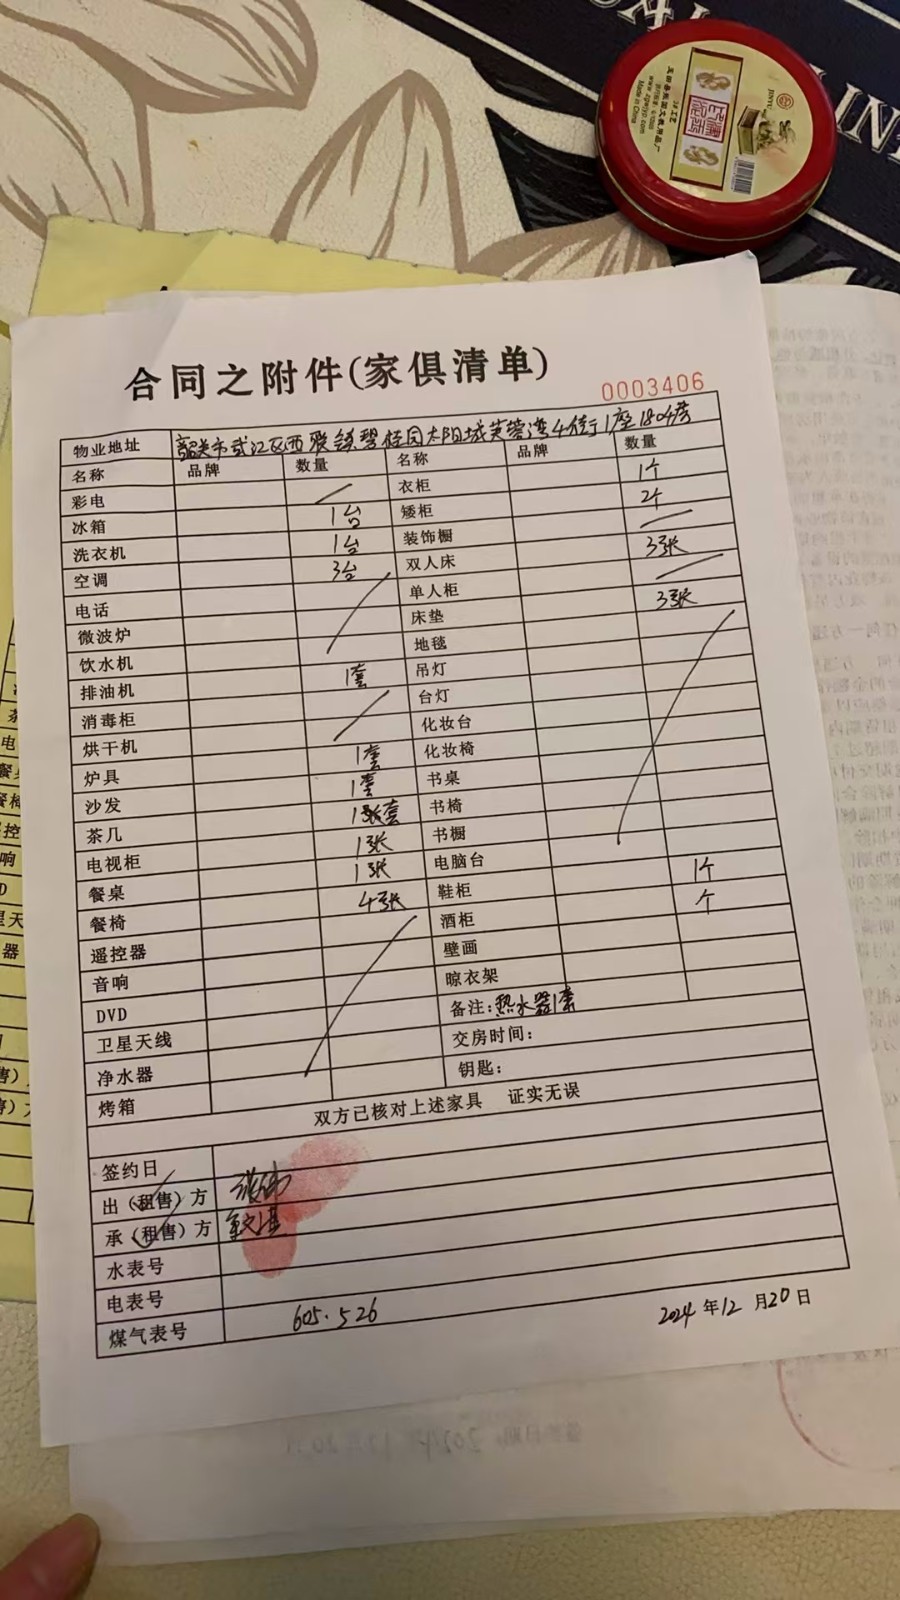 JINYU
www.zgmlyp.com
Made in China
合同之附件(家俱清单)
0003406
物业地址 韶关市武江区西联镇碧桂园太阳城芙蓉湾4街1座1804房
名称 品牌 数量 名称 品牌 数量
彩电 衣柜 1个
冰箱 1台 矮柜 2个
洗衣机 1台 装饰橱
空调 3台 双人床 3张
电话 单人柜
微波炉 床垫 3张
饮水机 地毯
排油机 1套 吊灯
消毒柜 台灯
烘干机 化妆台
炉具 1套 化妆椅
沙发 1套 书桌
茶几 1张套 书椅
电视柜 1张 书橱
餐桌 1张 电脑台
餐椅 4张 鞋柜 1个
遥控器 酒柜 个
音响 壁画
DVD 晾衣架
卫星天线 备注:热水器1套
净水器 交房时间:
烤箱 钥匙:
双方已核对上述家具 证实无误
签约日
出（租售）方
承（租售）方
水表号
电表号
煤气表号 605.526
2024 年12 月20日